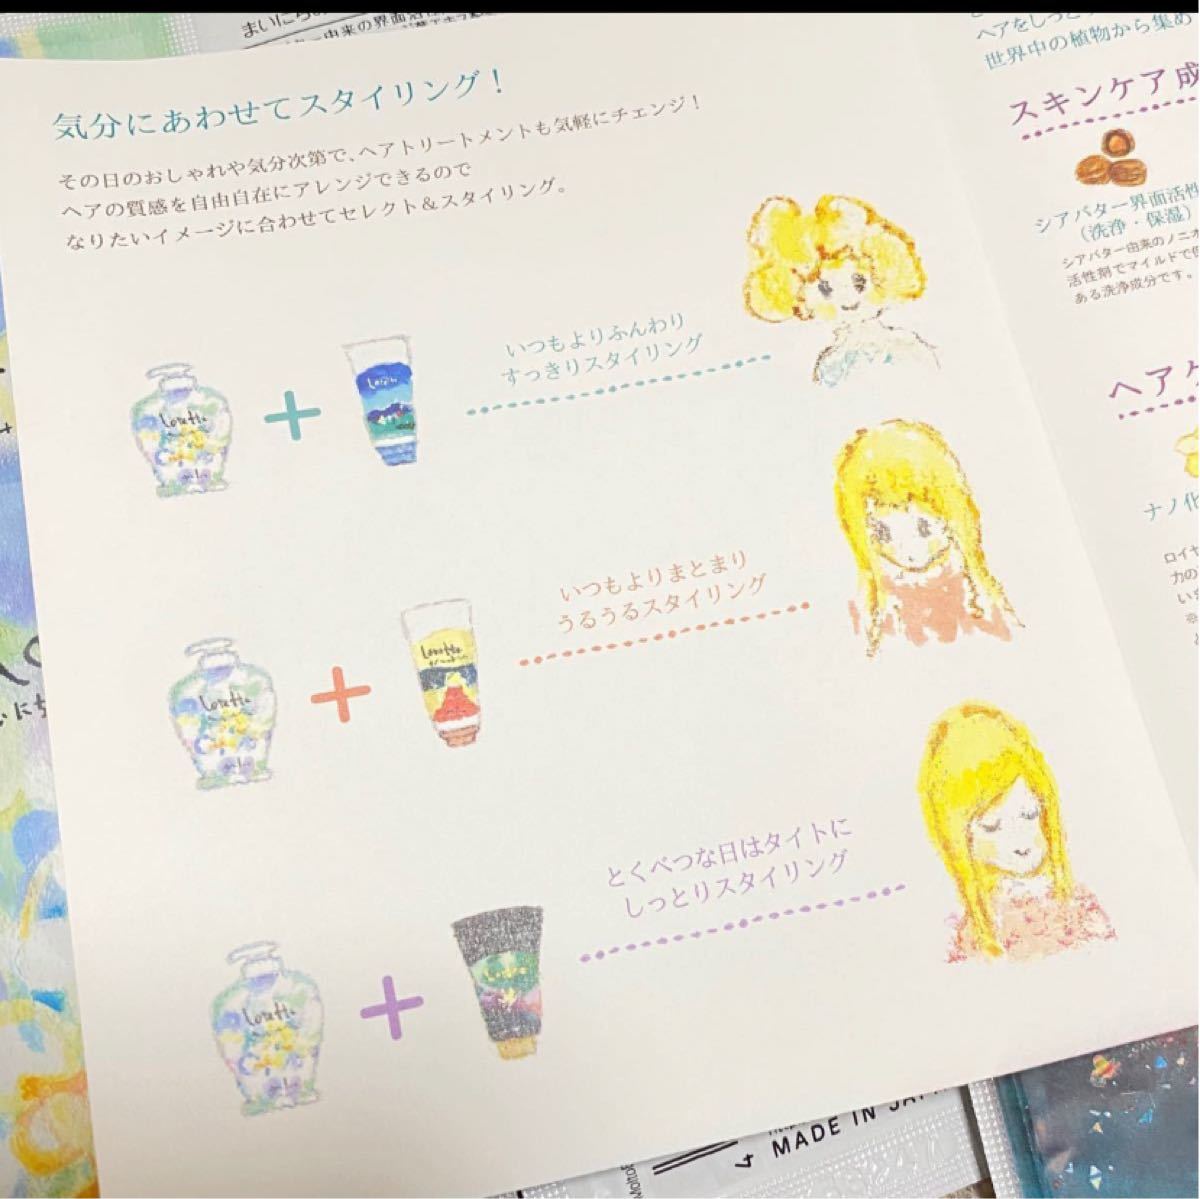 まいにちの
由来の界面活性
気分にあわせてスタイリング！
その日のおしゃれや気分次第で、ヘアトリートメントも気軽にチェンジ！
ヘアの質感を自由自在にアレンジできるので
なりたいイメージに合わせてセレクト＆スタイリング。
いつもよりふんわり
すっきりスタイリング
Loretta
いつもよりまとまり
うるうるスタイリング
Loretta
Loretta
とくべつな日はタイトに
しっとりスタイリング
Loretta
ヘアをしっと
世界中の植物から集め
スキンケア成
シアバター界面活性
（洗浄・保湿）
シアバター由来のノニオ
活性剤でマイルドで
ある洗浄成分です。
ヘアケ
ナノ化
ロイヤ
力の
いち
にち
MADE IN JAP